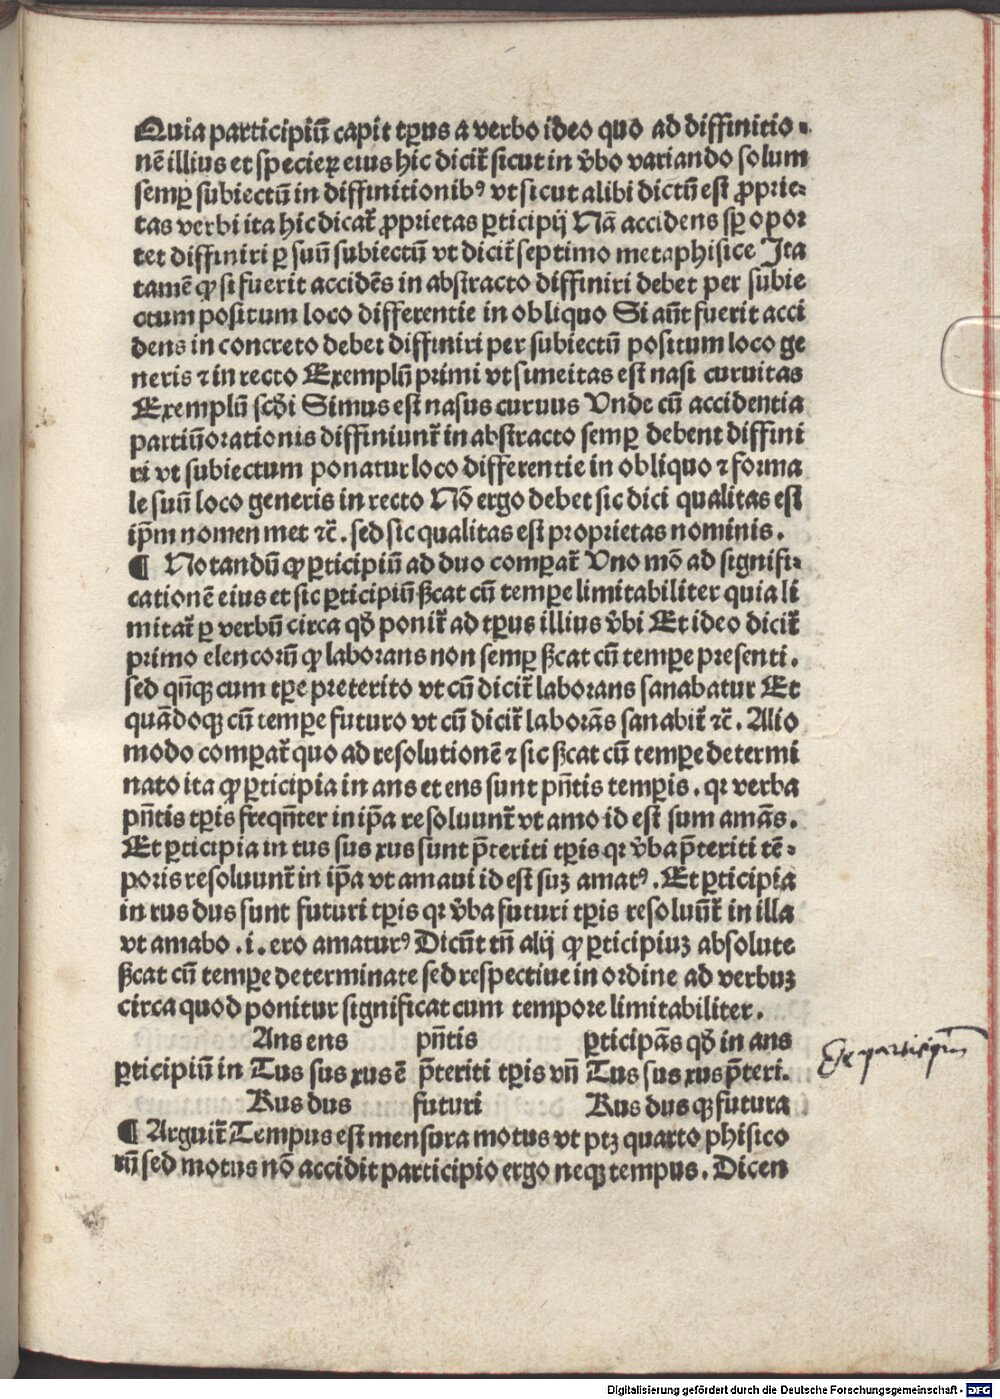 Quia participiū capit tp̄us a verbo ideo quo ad diffinitio⸗
nē illius et specieꝝ eius hic dicit̄ sicut in v̄bo variando solum
semꝑ subiectū in diffinitionibꝰ vt sicut alibi dictū est ꝓprie⸗
tas verbi ita hic dicat̄ ꝓprietas ꝑticipij Nā accidens sꝑ opor
tet diffiniri ꝑ suū subiectū vt dicit̄ septimo metaphisice Ita
tamē ꝙ si fuerit accidēs in abstracto diffiniri debet per subie
ctum positum loco differentie in obliquo Si aūt fuerit acci
dens in concreto debet diffiniri per subiectū positum loco ge
neris ⁊ in recto Exemplū primi vt simeitas est nasi curuitas
Exemplū scd̄i Simus est nasus curuus Vnde cū accidentia
partiū orationis diffiniunt̄ in abstracto semꝑ debent diffini
ri vt subiectum ponatur loco differentie in obliquo ⁊ forma
le suū loco generis in recto Nō ergo debet sic dici qualitas est
ip̄m nomen met ⁊c̄. sed sic qualitas est proprietas nominis.
¶ Notandū ꝙ ꝑticipiū ad duo comparat̄ Vno mō ad signifi⸗
cationē eius et sic ꝑticipiū ꝟcat cū tempe limitabiliter quia li
mitat̄ ꝑ verbū circa qd̄ ponit̄ ad tp̄us illius v̄bi Et ideo dicit̄
primo elencorū ꝙ laborans non semꝑ ꝟcat cū tempe presenti.
sed qn̄qꝫ cum tp̄e preterito vt cū dicit̄ laborans sanabatur Et
quādoqꝫ cū tempe futuro vt cū dicit̄ laborās sanabit̄ ⁊c̄. Alio
modo comparat̄ quo ad resolutionē ⁊ sic ꝟcat cū tempe determi
nato ita ꝙ ꝑticipia in ans et ens sunt pn̄tis tempis. qꝛ verba
pn̄tis tp̄is freqn̄ter in ip̄a resoluunt̄ vt amo id est sum amās.
Et ꝑticipia in tus sus xus sunt p̄teriti tp̄is qꝛ v̄ba p̄teriti tē⸗
poris resoluunt̄ in ip̄a vt amaui id est suꝫ amatꝰ. Et ꝑticipia
in rus dus sunt futuri tp̄is qꝛ v̄ba futuri tp̄is resoluūt̄ in illa
vt amabo .i. ero amaturꝰ Dicūt tn̄ alij ꝙ ꝑticipiuꝫ absolute
ꝟcat cū tempe determinate sed respectiue in ordine ad verbuꝫ
circa quod ponitur significat cum tempore limitabiliter.
Ans ens pn̄tis ꝑticipās qd̄ in ans
ꝑticipiū in Tus sus xus ē p̄teriti tp̄is vn̄ Tus sus xus p̄teri.
Rus dus futuri Rus dus qꝫ futura
¶ Arguit̄ Tempus est mensura motus vt ptꝫ quarto phisico
rū sed motus nō accidit participio ergo neqꝫ tempus. Dicen
Digitalisierung gefördert durch die Deutsche Forschungsgemeinschaft - DFG